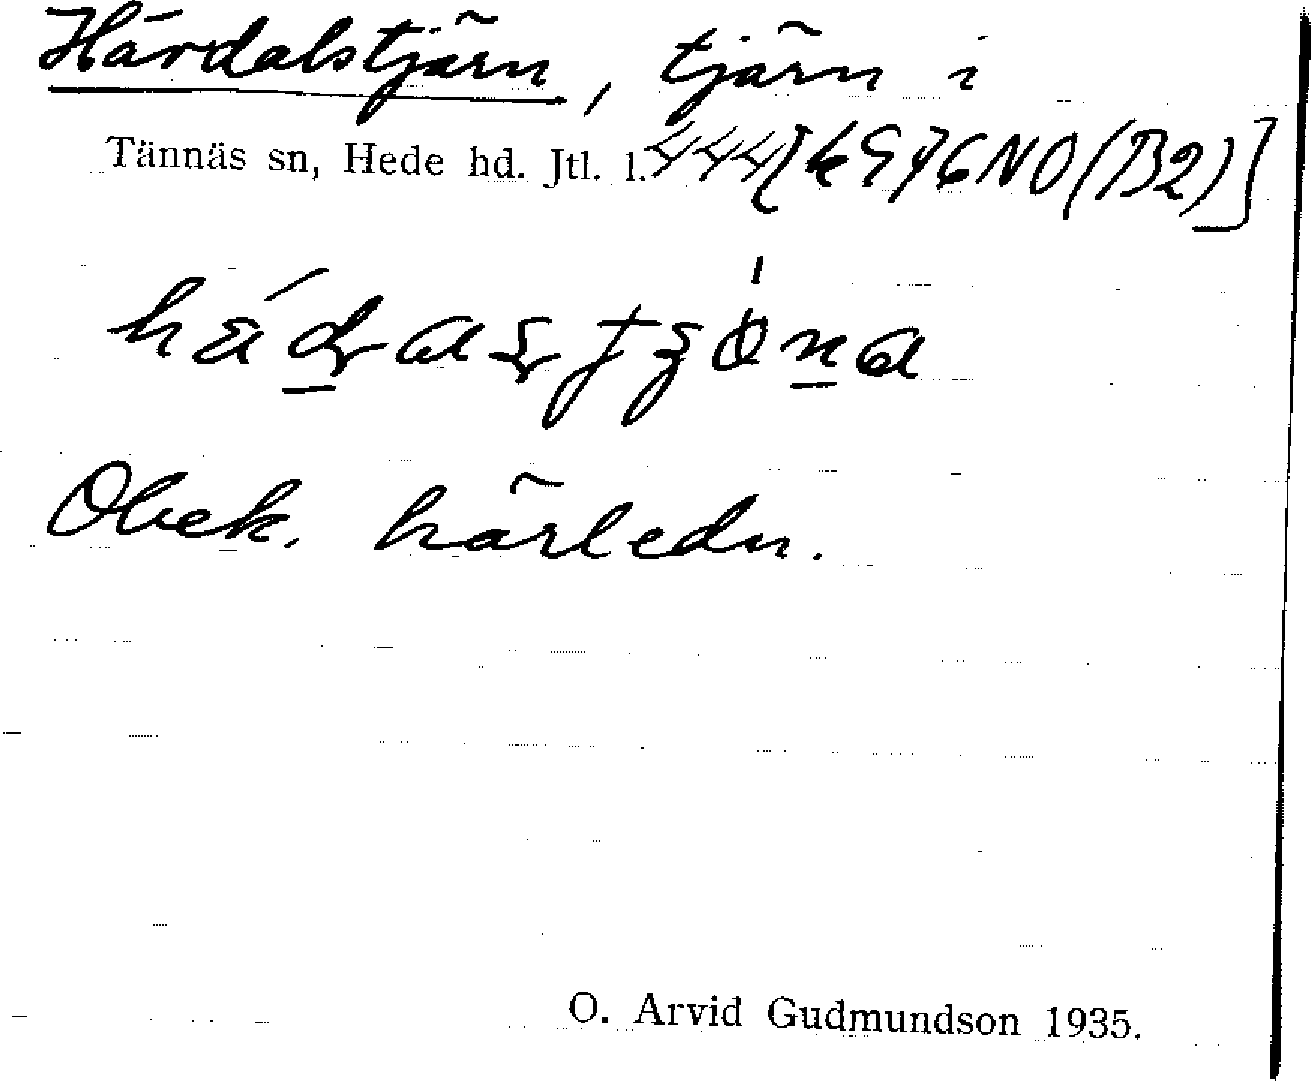 Härdalstjärn, tjärn i
Tännäs sn, Hede hd. Jtl. l. 444 [6976NO(B2)]
Obek. härledn.
O. Arvid Gudmundson 1935.